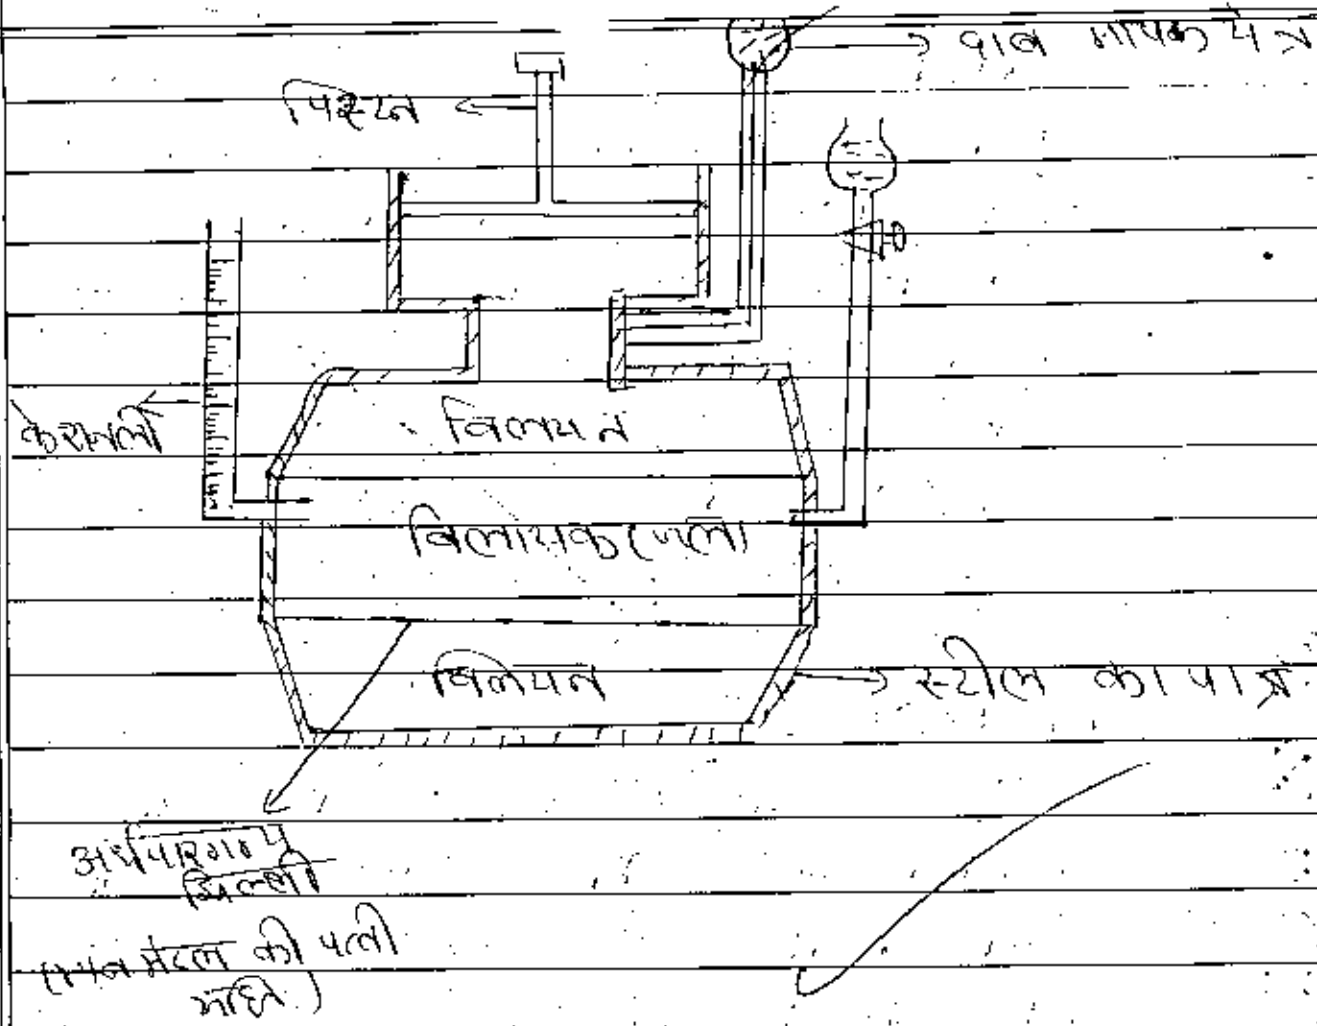 दाब मापक यंत्र
पिस्टन
केशनली
विलयन
विलायक (जल)
विलयन
स्टील का पात्र
अर्धपारगम्य
झिल्ली
की पतली